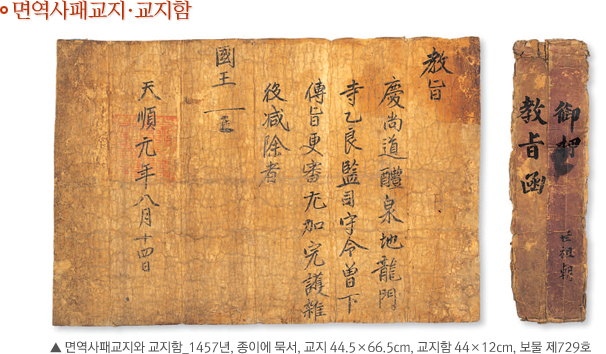 면역사패교지·교지함
敎旨
慶尚道醴泉地龍門
寺乙良監司守令曾下
傳旨更審尤加完護雜
役減除者
國王
天順元年八月十四日
御押
世祖朝
敎旨函
▲ 면역사패교지와 교지함_1457년, 종이에 묵서, 교지 44.5×66.5cm, 교지함 44×12cm, 보물 제729호